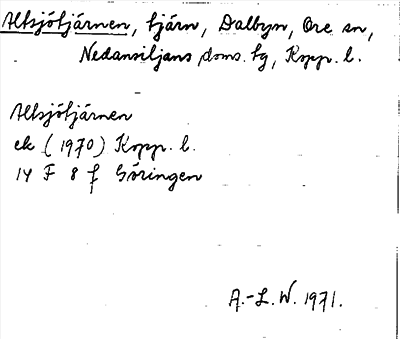 Altsjötjärnen, tjärn, Dalbyn, Ore sn,
Nedansiljans doms. tg, Kopp. l.
Altsjötjärnen
ek (1970) Kopp. l.
14 F 8 f Göringen
A.-L. W. 1971.